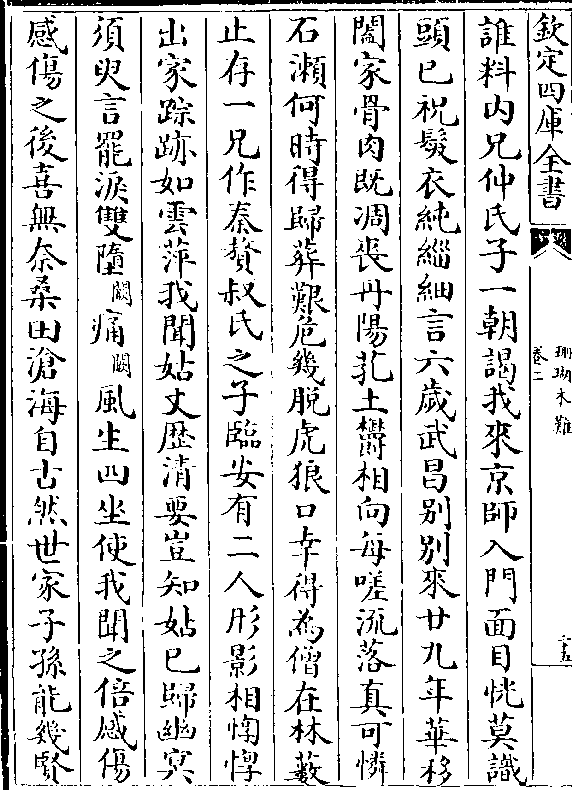 欽定四庫全書
珊瑚木難
卷二
誰料内兄仲氏子一朝謁我來京師入門面目恍莫識
頭已祝髮衣純緇細言六歲武昌别别來廿九年華移
闔家骨肉既凋喪丹陽𦲷土欝相向每嗟流落真可憐
石瀬何時得歸葬艱危幾脱虎狼口幸得為僧在林薮
止存一兄作秦贅叔氏之子臨安有二人形影相惸惸
出家踪跡如雲萍我聞姑丈歴清要豈知姑已歸幽冥
須臾言罷淚雙墮闕痛闕風生四坐使我聞之倍感傷
感傷之後喜無奈桑田滄海自古然世家子孫能幾賢